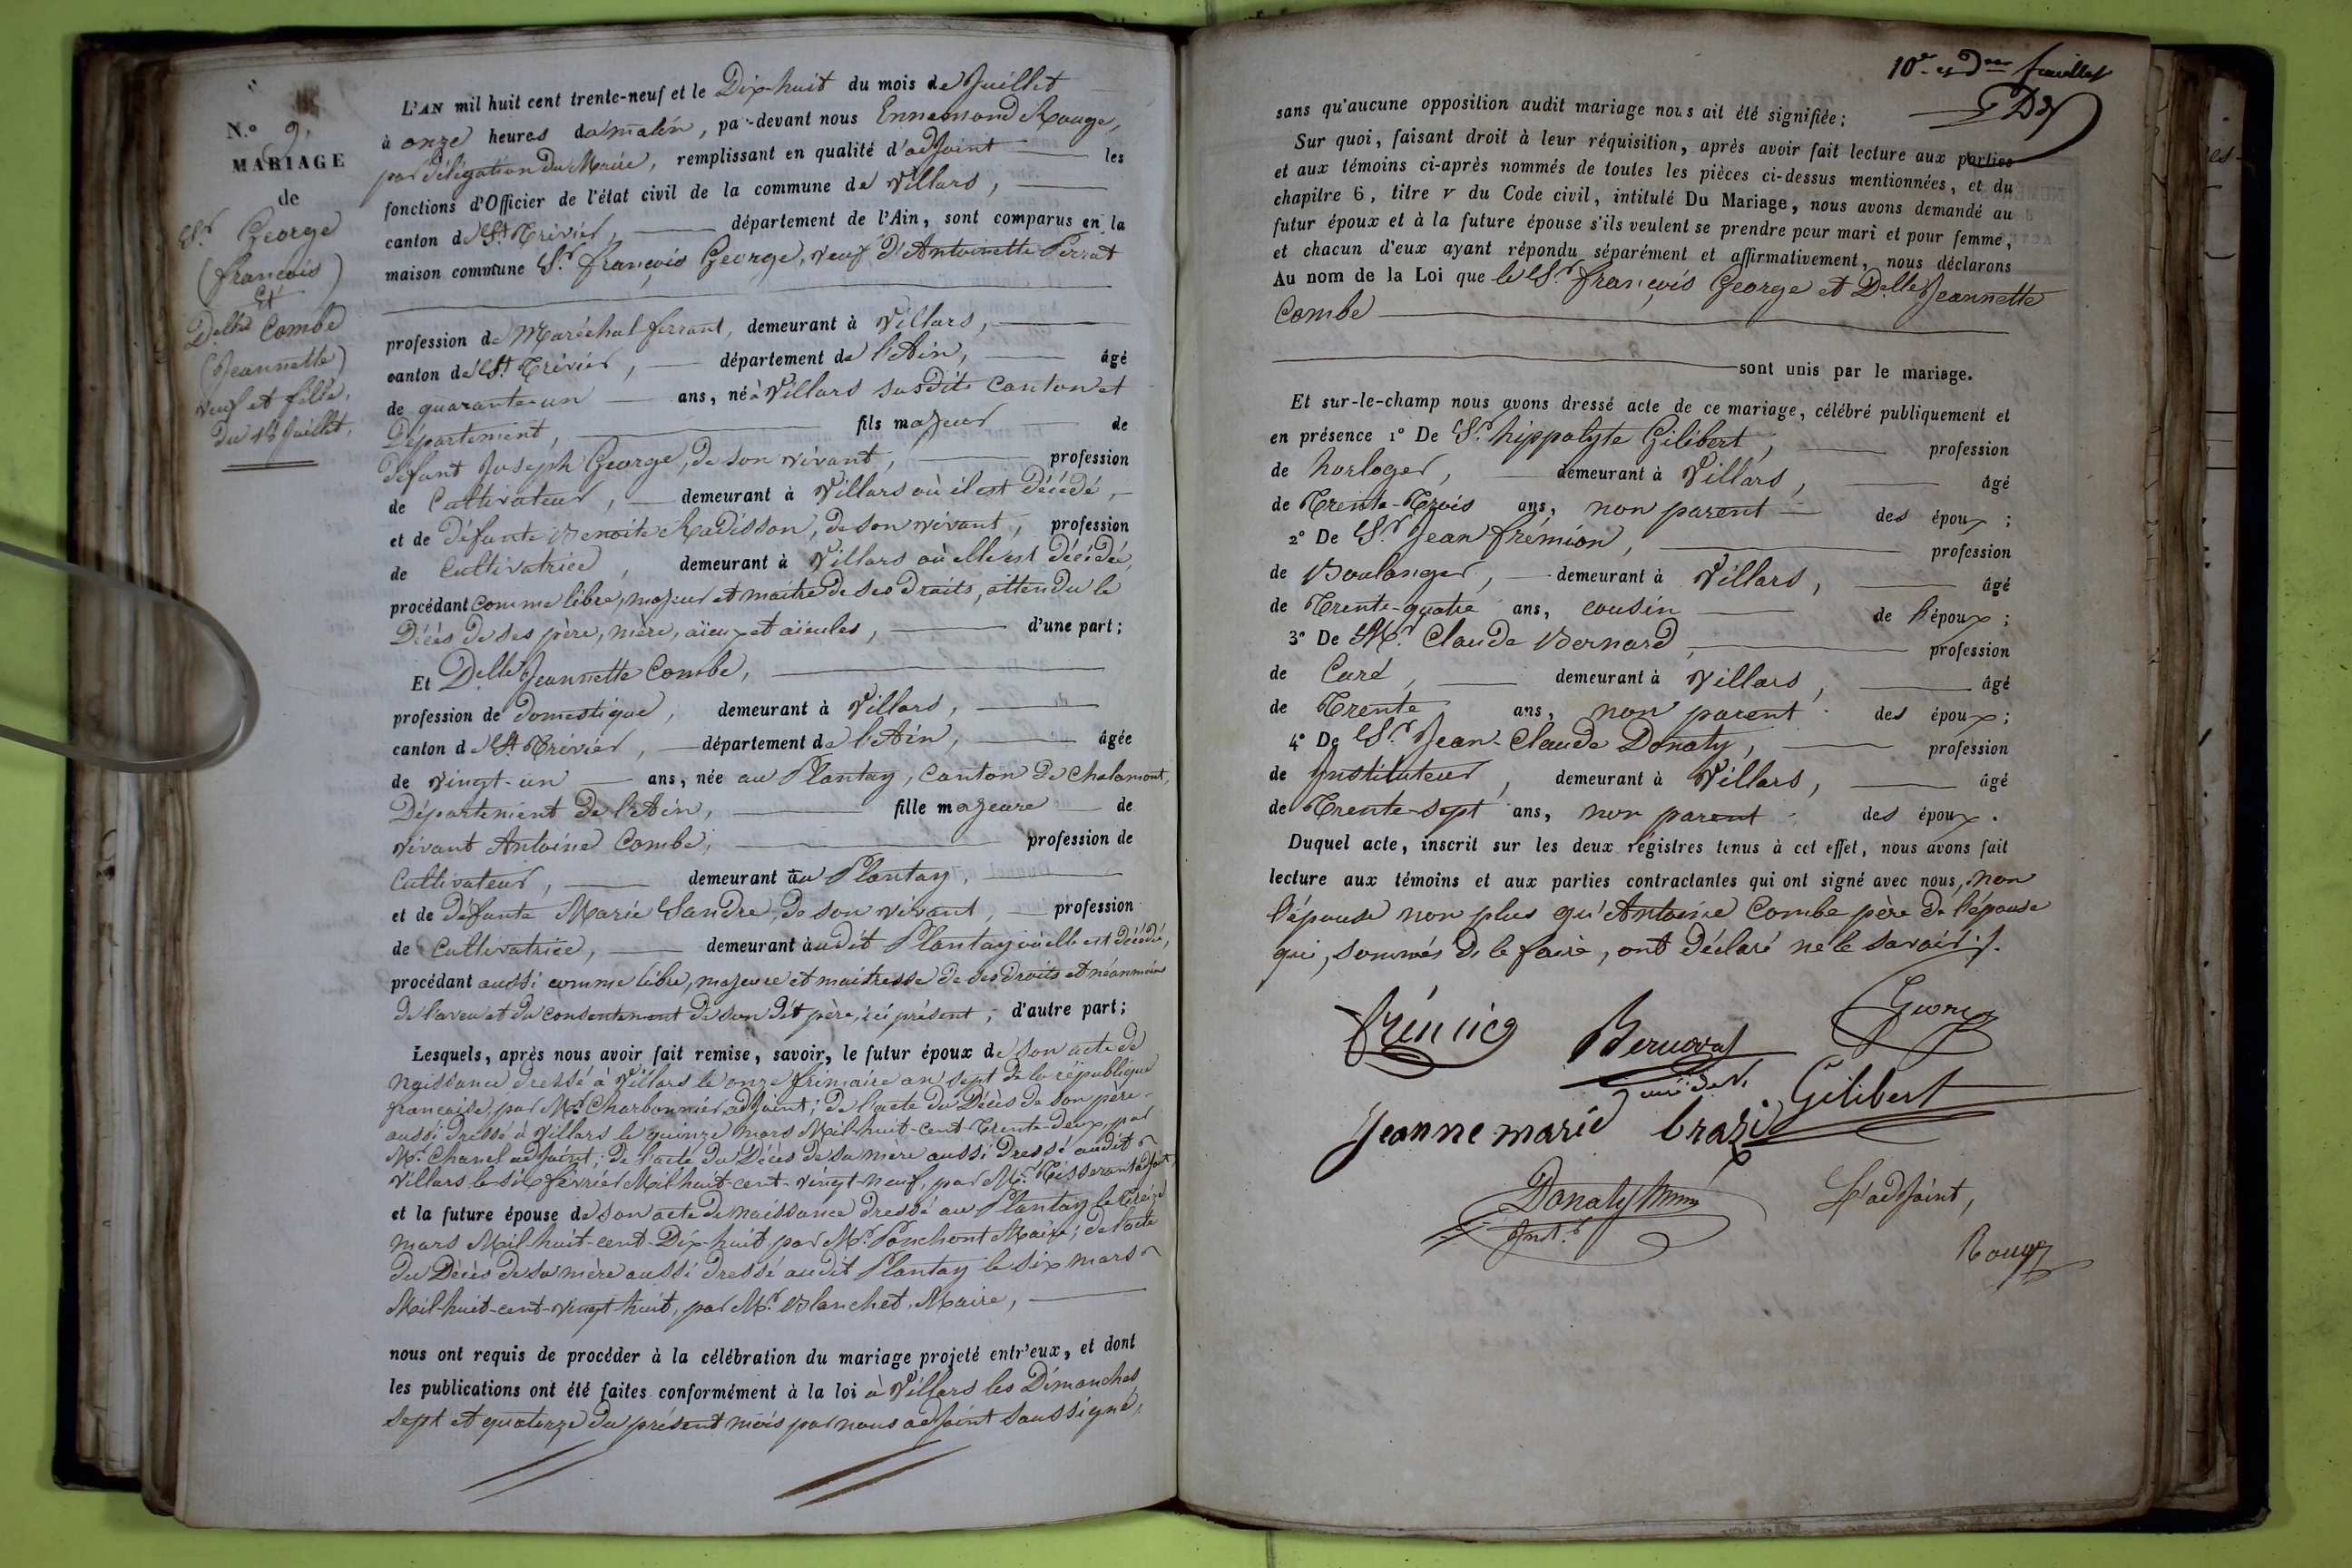 N.° 9.
MARIAGE
de
Sr. George
(françois)
Et
Delle Combe
(Jeannette)
veuf et fille.
Du 18 Juillet.
L'AN mil huit cent trente-neuf et le Dix-huit du mois de Juillet
à onze heures du matin, par-devant nous Ennemond Rouge,
par délégation du Maire, remplissant en qualité d'adjoint les
fonctions d'Officier de l'état civil de la commune de Villars,
canton de St. Trivier, département de l'Ain, sont comparus en la
maison commune Sr. françois George, veuf d'Antoinette Perrat
profession de Maréchal ferrant, demeurant à Villars,
canton de St. Trivier, département de l'Ain, âgé
de quarante-un ans, né à Villars susdits canton et
Département, fils majeur de
défunt Joseph George, de son vivant, profession
de Cultivateur, demeurant à Villars où il est décédé,
et de défunte Benoite Radisson, de son vivant, profession
de Cultivatrice, demeurant à Villars où elle est décédée,
procédant comme libre, majeur et maître de ses droits, attendu le
Décès de ses père, mère, aïeux et aïeules, d'une part;
Et Delle Jeannette Combe,
profession de domestique, demeurant à Villars,
canton de St. Trivier, département de l'Ain, âgée
de vingt-un ans, née au Plantay, Canton de Chalamont,
Département de l'Ain, fille majeure de
vivant Antoine Combe, profession de
Cultivateur, demeurant au Plantay,
et de défunte Marie Sandre, de son vivant, profession
de Cultivatrice, demeurant audit Plantay où elle est décédée,
procédant aussi comme libre, majeure et maitresse de ses droits et néanmoins
de l'aveu et du consentement de son dit père, ici présent, d'autre part;
Lesquels, après nous avoir fait remise, savoir, le futur époux de son acte de
Naissance dressé à Villars le onze frimaire an sept de la république
française, par Mr. Charbonnier adjoint; de l'acte du Décès de son père
aussi dressé à Villars le quinze mars Mil-huit-cent-Trente-deux, par
Mr. Chanel adjoint; de l'acte du Décès de sa mère aussi dressé audit
Villars le six février Mil-huit-cent-vingt-neuf, par Mr. Tisserant adjoint;
et la future épouse de son acte de naissance dressé au Plantay le treize
mars Mil-huit-cent-Dix-huit, par Mr. Ponchont Maire; de l'acte
du Décès de sa mère aussi dressé audit Plantay le six mars
Mil-huit-cent-vingt-huit, par Mr. Blanchet, Maire,
nous ont requis de procéder à la célébration du mariage projeté entr'eux, et dont
les publications ont été faites conformément à la loi à Villars les Dimanches
sept et quatorze du présent mois par nous adjoint soussigné,
10e et Der feuillet
sans qu'aucune opposition audit mariage nous ait été signifiée;
Sur quoi, faisant droit à leur réquisition, après avoir fait lecture aux parties
et aux témoins ci-après nommés de toutes les pièces ci-dessus mentionnées, et du
chapitre 6, titre v du Code civil, intitulé Du Mariage, nous avons demandé au
futur époux et à la future épouse s'ils veulent se prendre pour mari et pour femme,
et chacun d'eux ayant répondu séparément et affirmativement, nous déclarons
Au nom de la Loi que le Sr. françois George et Delle Jeannette
Combe
sont unis par le mariage.
Et sur-le-champ nous avons dressé acte de ce mariage, célébré publiquement et
en présence 1° De Sr. hippolyte Gilibert, profession
de horloger, demeurant à Villars, âgé
de Trente-Trois ans, non parent des époux;
2° De Sr. Jean frémion, profession
de Boulanger, demeurant à Villars, âgé
de Trente-quatre ans, cousin de l'époux;
3° De Mr. Claude Bernard, profession
de Curé, demeurant à Villars, âgé
de Trente ans, non parent des époux;
4° De Sr. Jean-Claude Donaty, profession
de Instituteur, demeurant à Villars, âgé
de Trente-sept ans, non parent des époux.
Duquel acte, inscrit sur les deux régistres tenus à cet effet, nous avons fait
lecture aux témoins et aux parties contractantes qui ont signé avec nous, non
l'épouse non plus qu'Antoine Combe père de l'épouse
qui, sommés de le faire, ont déclaré ne le savoir.
Bernard
curé de V.
George
Gilibert
Jeanne marie
Donaty
Inst.r
L'adjoint,
Rouge